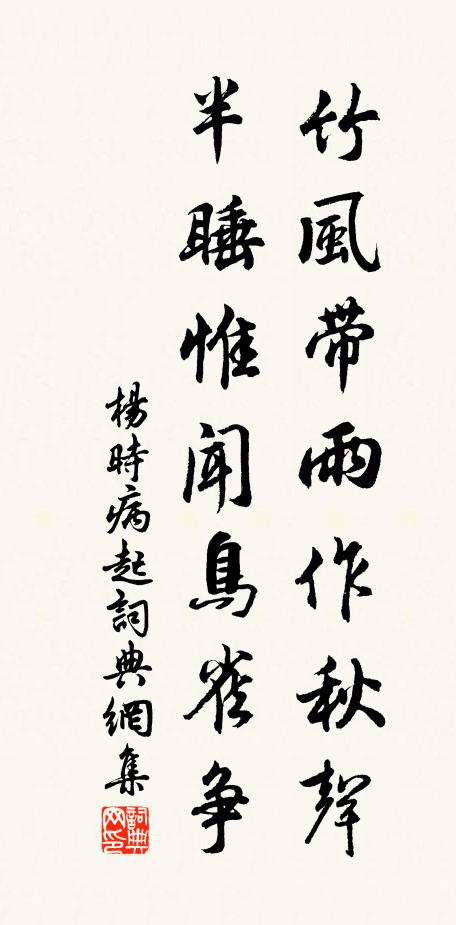 竹風帶雨作秋聲
半睡惟聞鳥雀争
楊時病起詞典網集
詞典网印